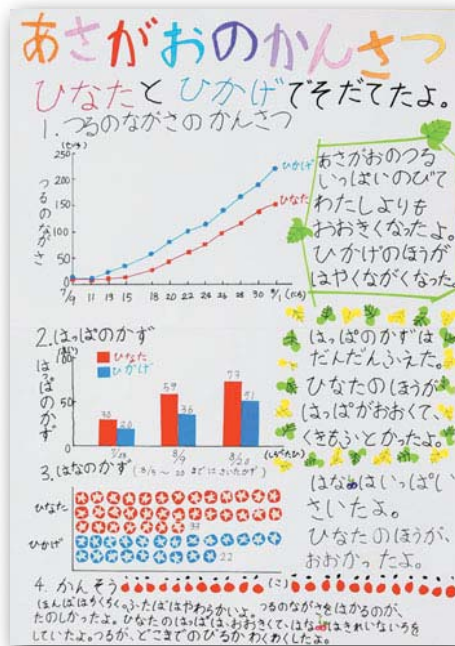 あさがおのかんさつ
ひなたと ひかげでそだてたよ。
1. つるのながさのかんさつ
(センチ)
つるのながさ
250
200
150
100
50
0
ひかげ
ひなた
7/9 11 13 15 18 20 22 24 26 28 30 8/1
あさがおのつる
いっぱいのびて
わたしよりも
おおきくなったよ。
ひかげのほうが
はやくながくなった。
2. はっぱのかず
はっぱのかず
50
0
ひなた
ひかげ
30 20
59 36
77 51
7/23 8/9 8/20
(しらべたひ)
はっぱのかずは
だんだんふえた。
ひなたのほうが
はっぱがおおくて、
くきもふとかったよ。
3. はなのかず
ひなた
ひかげ
22
(こ)
はなはいっぱい
さいたよ。
ひなたのほうが、
おおかったよ。
4. かんそう
ふたばはやわらかいよ。つるのながさをはかるのが、
たのしかったよ。ひなたのはっぱは、おおきくて、はなはきれいないろを
していたよ。つるが、どこまでのびるかわくわくしたよ。